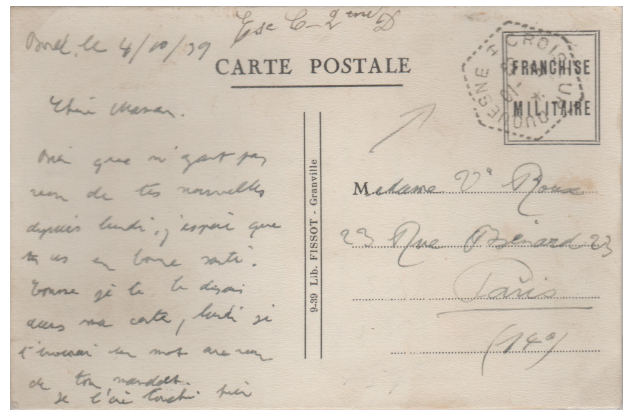 Bord, le 4/10/39
CARTE POSTALE
FRANCHISE
MILITAIRE
CROISEUR DUQUESNE
Chère Maman.
Bien que n'ayant pas
reçu de tes nouvelles
depuis lundi, j'espère que
tu es en bonne santé.
Comme je te le disais
dans ma carte, lundi je
t'enverrai un mot
de ton mandat.
Je l'ai touché hier
9-39 Lib. FISSOT - Granville
Madame Vᵉ Roux
23 Rue Bénard 23
Paris
(14e)